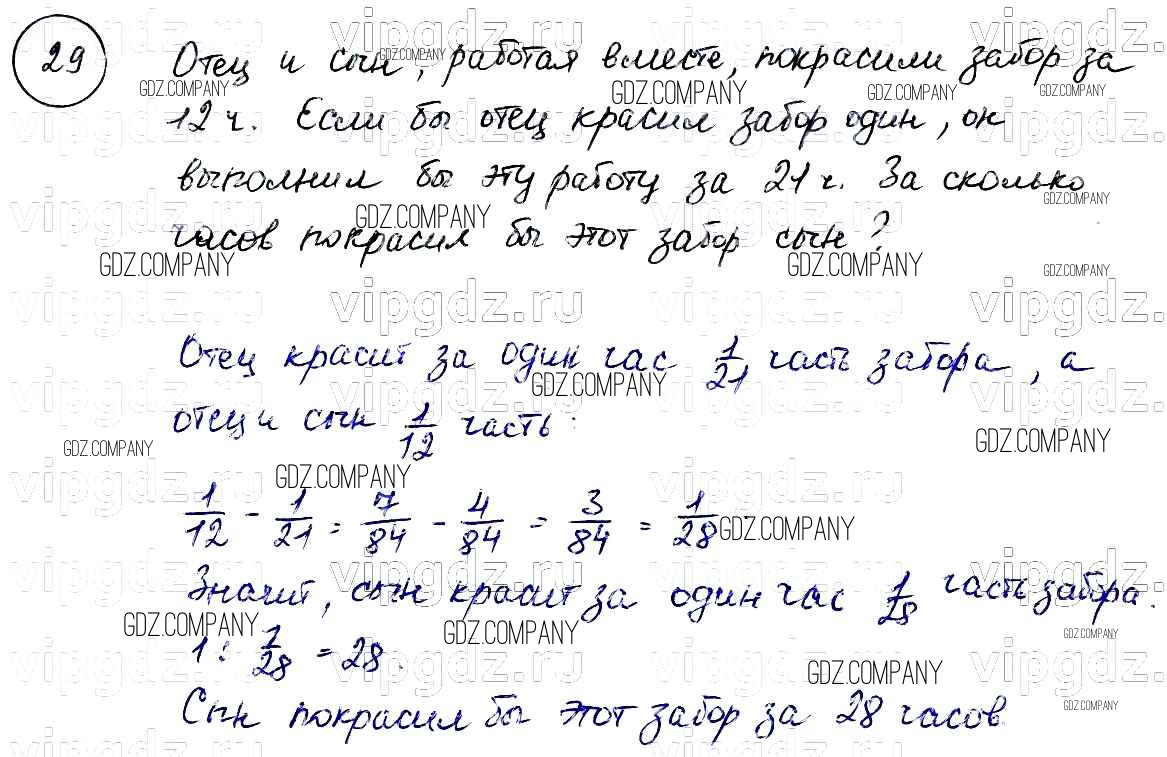 29
Отец и сын, работая вместе, покрасили забор за
12 ч. Если бы отец красил забор один, он
выполнил бы эту работу за 21 ч. За сколько
часов покрасил бы этот забор сын?
Отец красит за один час 1/21 часть забора, а
отец и сын 1/12 часть:
1/12 - 1/21 = 7/84 - 4/84 = 3/84 = 1/28
Значит, сын красит за один час 1/28 часть забора.
1 : 1/28 = 28.
Сын покрасил бы этот забор за 28 часов.
vipgdz.ru
GDZ.COMPANY